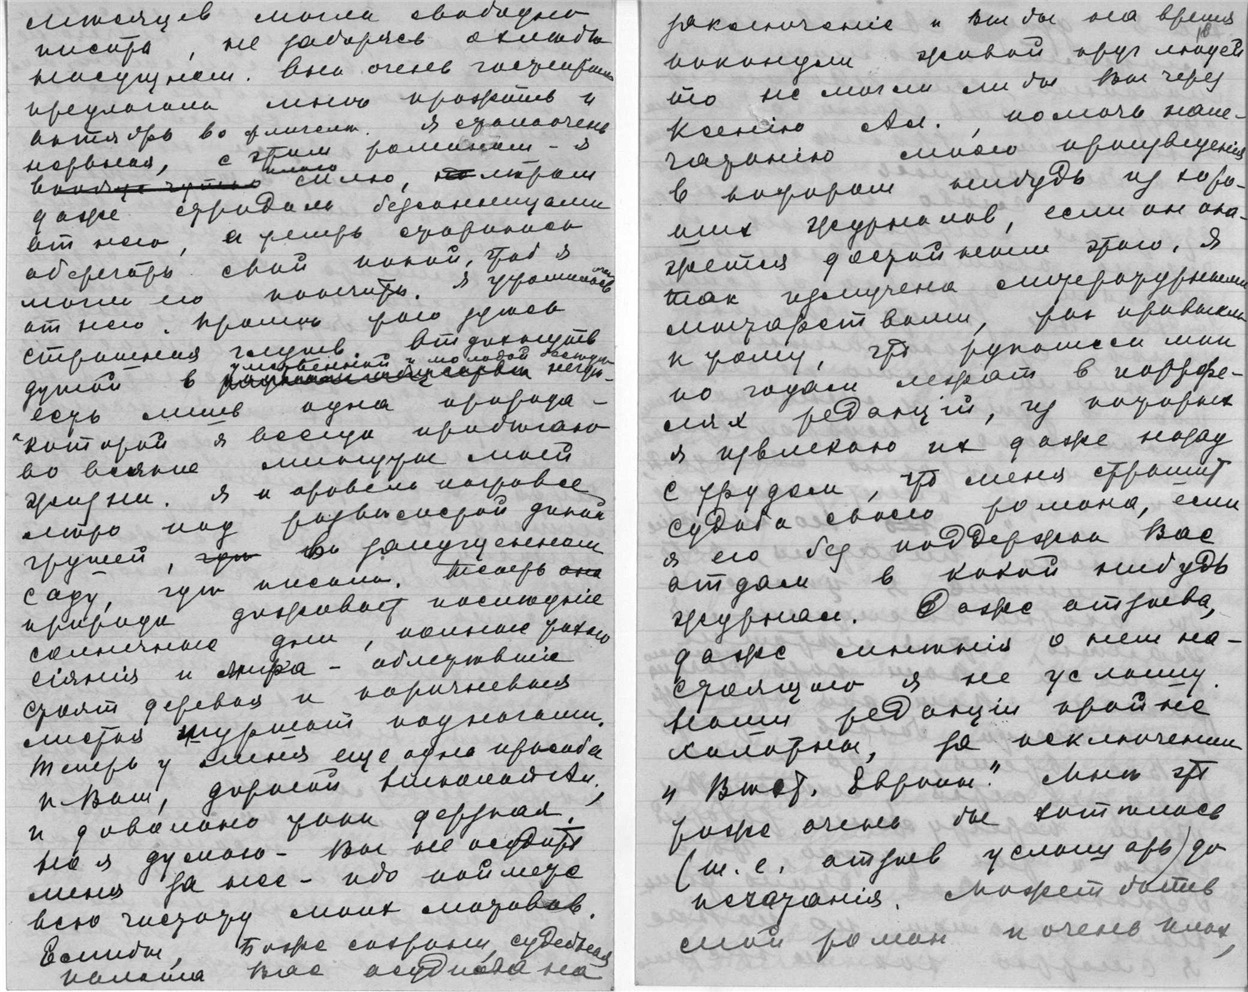 мѣсяцев могла свободно
писать, не заботясь о хлѣбѣ
насущном. Она очень гостепріимно
предлагала мнѣ прожить и
октябрь во флигелѣ. Я стала очень
нервная, с этим романом - я
силю, по утрам
даже страдала безсонницами
от него, а теперь стараюсь
оберегать свой покой, чтоб я
могла его кончить. Я утомилась
от него. Кромѣ того здѣсь
страшная глушь. Отдохнуть
душой в умственный и молодой негдѣ -
есть лишь одна природа -
к которой я всегда прибѣгаю
во всякіе минуты моей
жизни. Я и провела почти все
лѣто под развѣсистой дикой
грушей, в запущенном
саду, тут писала. Теперь
природа доживает послѣдніе
солнечные дни, полные тихаго
сіянія и мира - облетѣвшіе
стоят деревья и коричневыя
листья шуршат под ногами.
Теперь у меня еще одна просьба
к Вам, дорогой Ал.,
и довольно таки дерзкая,
но я думаю - Вы не осудите
меня за нее - ибо поймете
всю чистоту моих мотивов.
Еслибы, Боже сохрани, судебная
палата Вас осудила на
заключеніе и Вы бы на время
покинули живой круг людей
то не могли ли бы Вы через
Ксенію Ал., помочь напе-
чатанію моего произведенія
в котором нибудь из хоро-
ших журналов, если он ока-
жется достойным этого. Я
так измучена литературными
мытарствами, так привыкла
к тому, что рукописи мои
по годам лежат в портфе-
лях редакцій, из которых
я извлекаю их даже назад
с трудом, что меня страшит
судьба своего романа, если
я его без поддержки Вас
отдам в какой нибудь
журнал. Даже отзыва,
даже мнѣнія о нем на-
стоящаго я не услышу.
Наши редакціи крайне
халатны, за исключеніем
"Вѣст. Европы". Мнѣ это
тоже очень бы хотѣлось
(т. е. отзыв услышать) до
печатанія. Может быть
мой роман и очень плох,